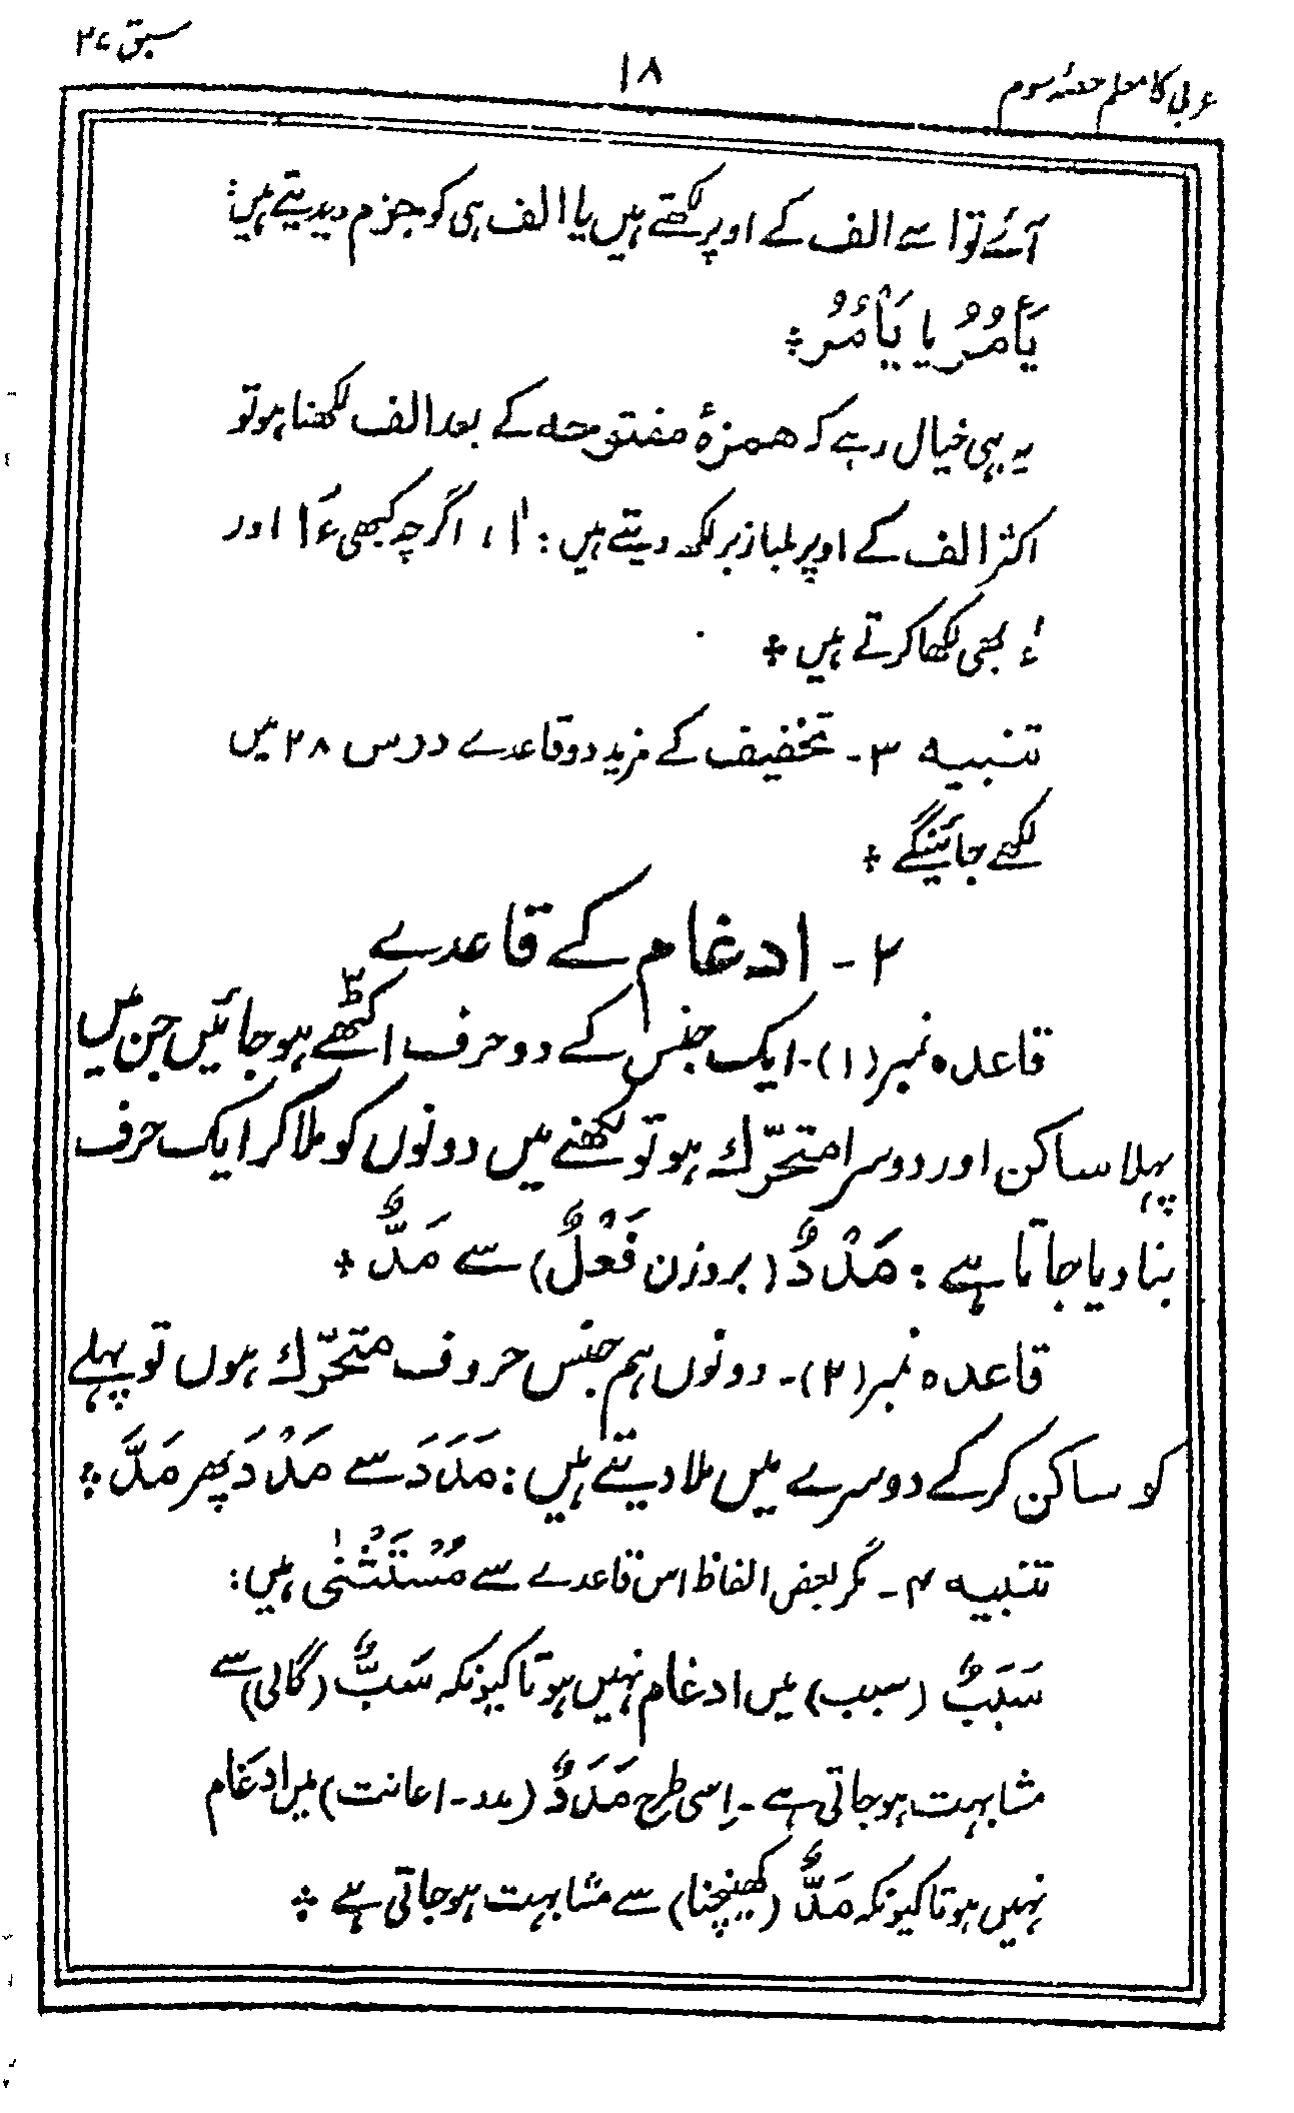 عربی کا معلم حصّہ سوم
۱۸
سبق ۲۷
آئے تو اسے الف کے اوپر لکھتے ہیں یا الف ہی کو جزم دیدیتے ہیں:
يَأمُرُ یا يَأْمُرُ ❖
یہ بھی خیال رہے کہ ہمزۂ مفتوحہ کے بعد الف لکھنا ہو تو
اکثر الف کے اوپر لمبا زبر لکھ دیتے ہیں: اٰ، اگرچہ کبھی ءَا اور
ءٰ بھی لکھا کرتے ہیں ❖
تنبیہ ۳۔ تخفیف کے مزید دو قاعدے درس ۲۸ میں
لکھے جائینگے ❖
۲۔ ادغام کے قاعدے
قاعدہ نمبر (۱)۔ ایک جنس کے دو حرف اکٹھے ہو جائیں جن میں
پہلا ساکن اور دوسرا متحرّک ہو تو لکھنے میں دونوں کو ملا کر ایک حرف
بنا دیا جاتا ہے: مَدْدٌ (بروزن فَعْلٌ) سے مَدٌّ ❖
قاعدہ نمبر (۲)۔ دونوں ہم جنس حروف متحرّک ہوں تو پہلے
کو ساکن کر کے دوسرے میں ملا دیتے ہیں: مَدَدَ سے مَدْدَ پھر مَدَّ ❖
تنبیہ ۴۔ مگر بعض الفاظ اس قاعدے سے مُسْتَثْنٰی ہیں:
سَبَبٌ (سبب) میں ادغام نہیں ہوتا کیونکہ سَبٌّ (گالی) سے
مشابہت ہو جاتی ہے۔ اِسی طرح مَدَدٌ (مدد۔ اعانت) میں ادغام
نہیں ہوتا کیونکہ مَدٌّ (کھینچنا) سے مشابہت ہو جاتی ہے ❖